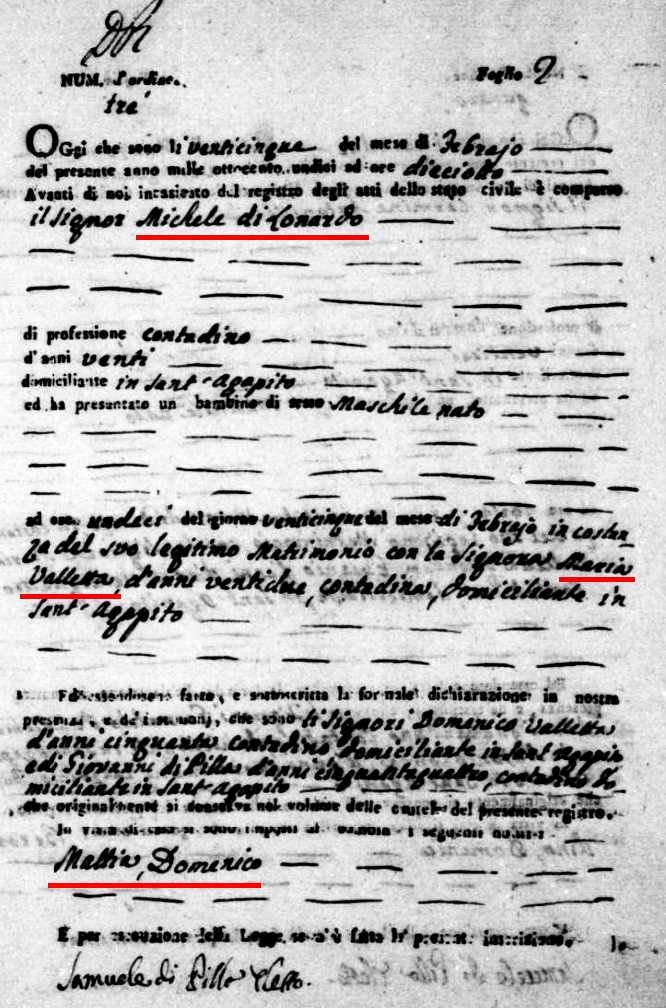 NUM. d'ordine. Foglio 2
tre
OGgi che sono li venticinque del mese di Febrajo
del presente anno mille ottocento undici ad ore dieciotto
Avanti di noi incaricato del registro degli atti dello stato civile è comparso
il Signor Michele di Lonardo
di professione contadino
d'anni venti
domiciliante in Sant'Agapito
ed ha presentato un bambino di sesso Maschile nato
ad ore undeci del giorno venticinque del mese di Febrajo in costan
za del suo legitimo Matrimonio con la Signora Maria
Valletta, d'anni ventidue, contadina, domiciliante in
Sant'Agapito
Ed essendosene fatta, e sottoscritta la formale dichiarazione in nostra
presenza, e de' testimonj, che sono li Signori Domenico Valletta
d'anni cinquanta contadino domiciliante in Sant'Agapito
e di Giovanni di Pilla d'anni cinquantaquattro, contadino do
miciliante in Sant'Agapito
che originalmente si conserva nel volume delle cautele del presente registro.
si sono imposti al bambino i seguenti nomi
Mattia, Domenico
E per esecuzione della Legge, se n'è fatta la presente iscrizione.
Samuele di Pilla Eletto.